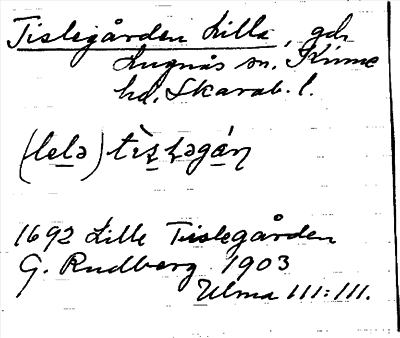 Tislegården Lilla, gd.
Lugnås sn. Kinne
hd. Skarab. l.
(lelə) tès̠ləgán
1692 Lille Tislegården
G. Rudberg 1903
Ulma 111:111.